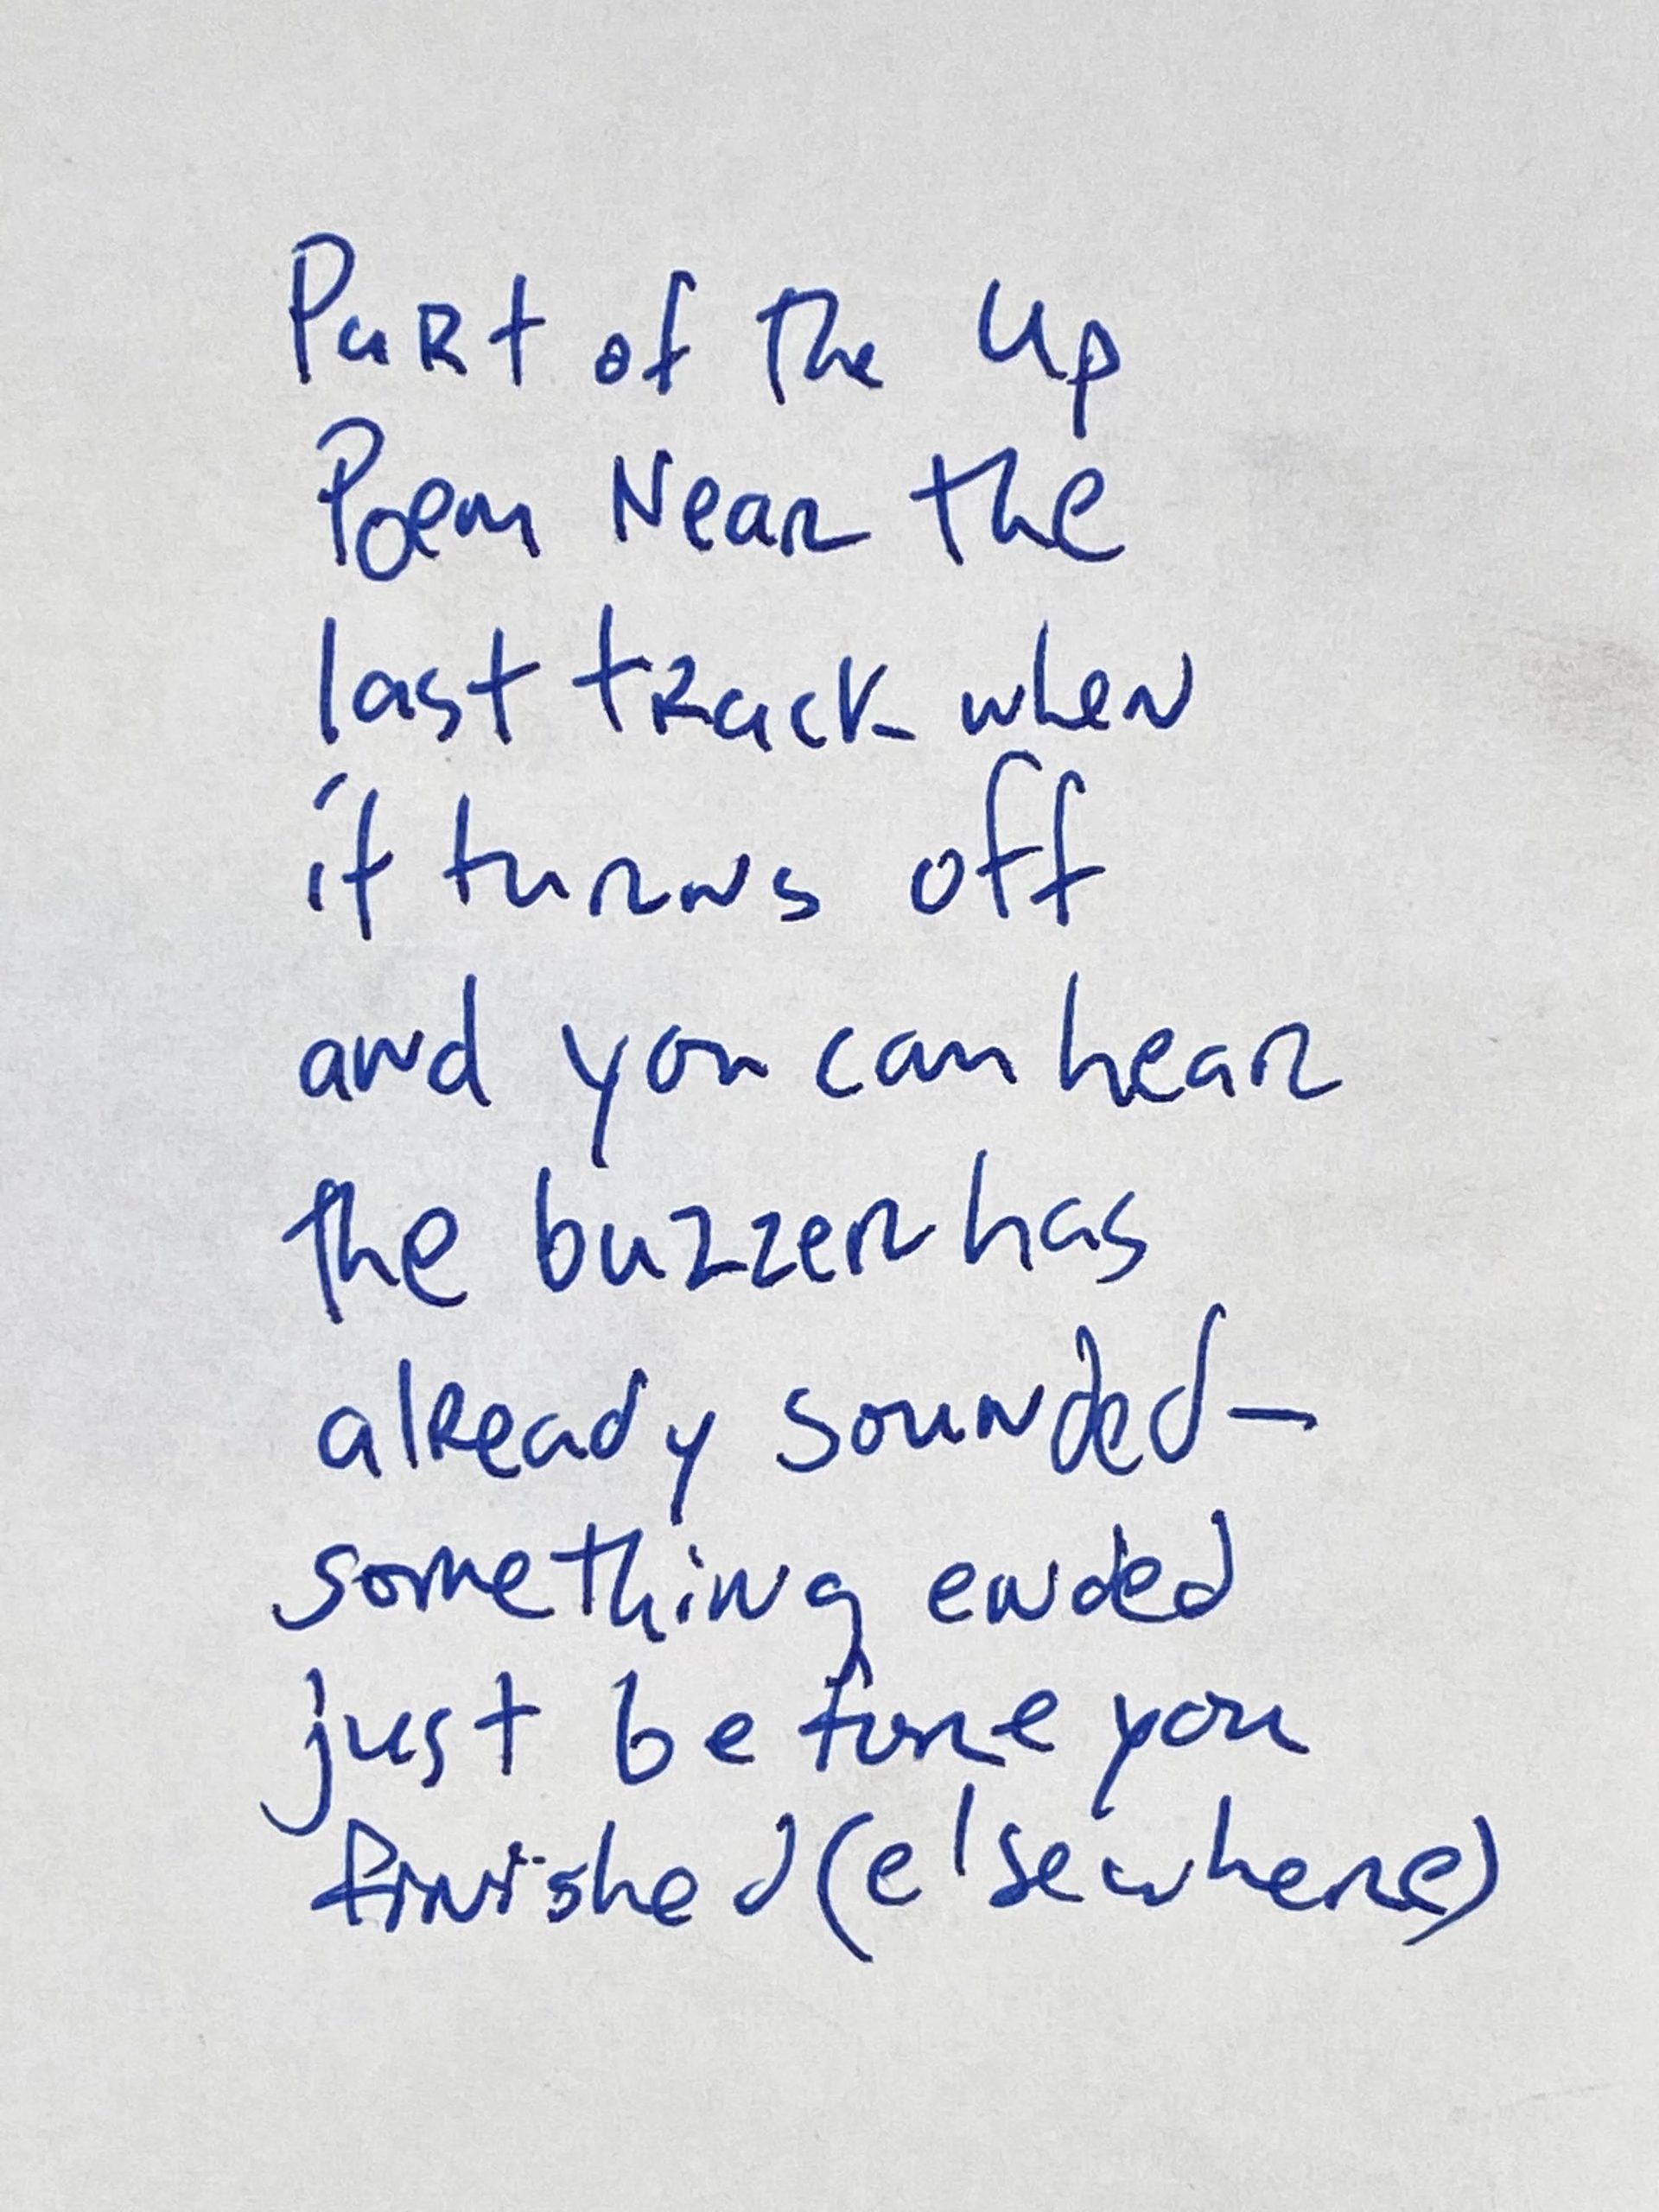 Part of the Up
Poem Near the
last track when
it turns off
and you can hear
the buzzer has
already sounded—
something ended
just before you
finished (elsewhere)